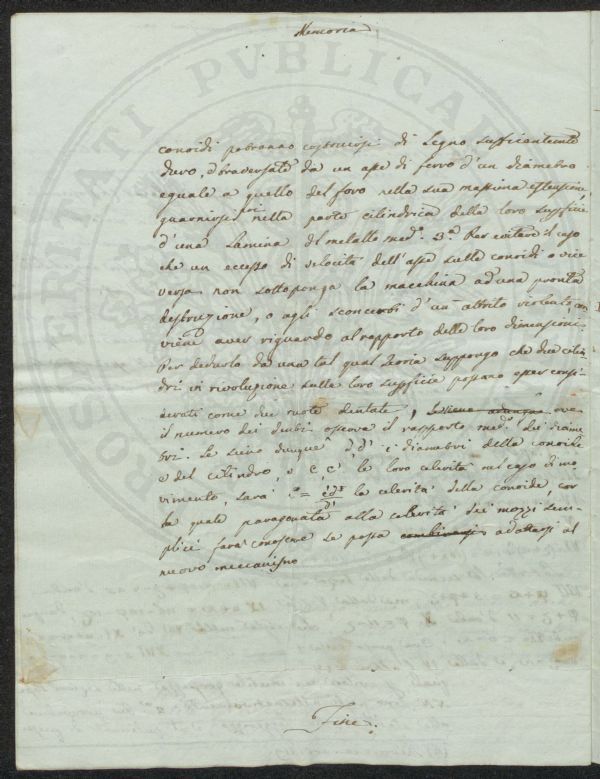 Memoria
conoidi potranno costruirsi di Legno sufficientemente
duro, attraversate da un asse di ferro d'un diametro
eguale a quello del foro nella sua massima estensione,
guarnirsi poi nella parte cilindrica della loro superficie
d'una Lamina di metallo med.º 3.ª Per evitare il caso
che un eccesso di velocità dell'asse sulle conoidi o vice
versa non sottoponga la macchina ad una pronta
destruzione, o agli sconcerti d'un attrito violento, con
viene aver riguardo al rapporto delle loro dimensioni.
Per dedurlo da una tal qual teoria suppongo che due cilin
dri in rivoluzione sulle loro superficie possano esser consi
derati come due ruote dentate, ove
il numero dei denti osserva il rapporto med.º dei diame
tri. Se sieno dunque d d' i diametri della conoide
e del cilindro, e c c' le loro celerità nel caso di mo
vimento, sarà la celerità della conoide, con
la quale paragonata alla celerità dei mozzi sem
plici farà conoscere se possa adattarsi al
nuovo meccanismo
Fine.
PVBLICAE